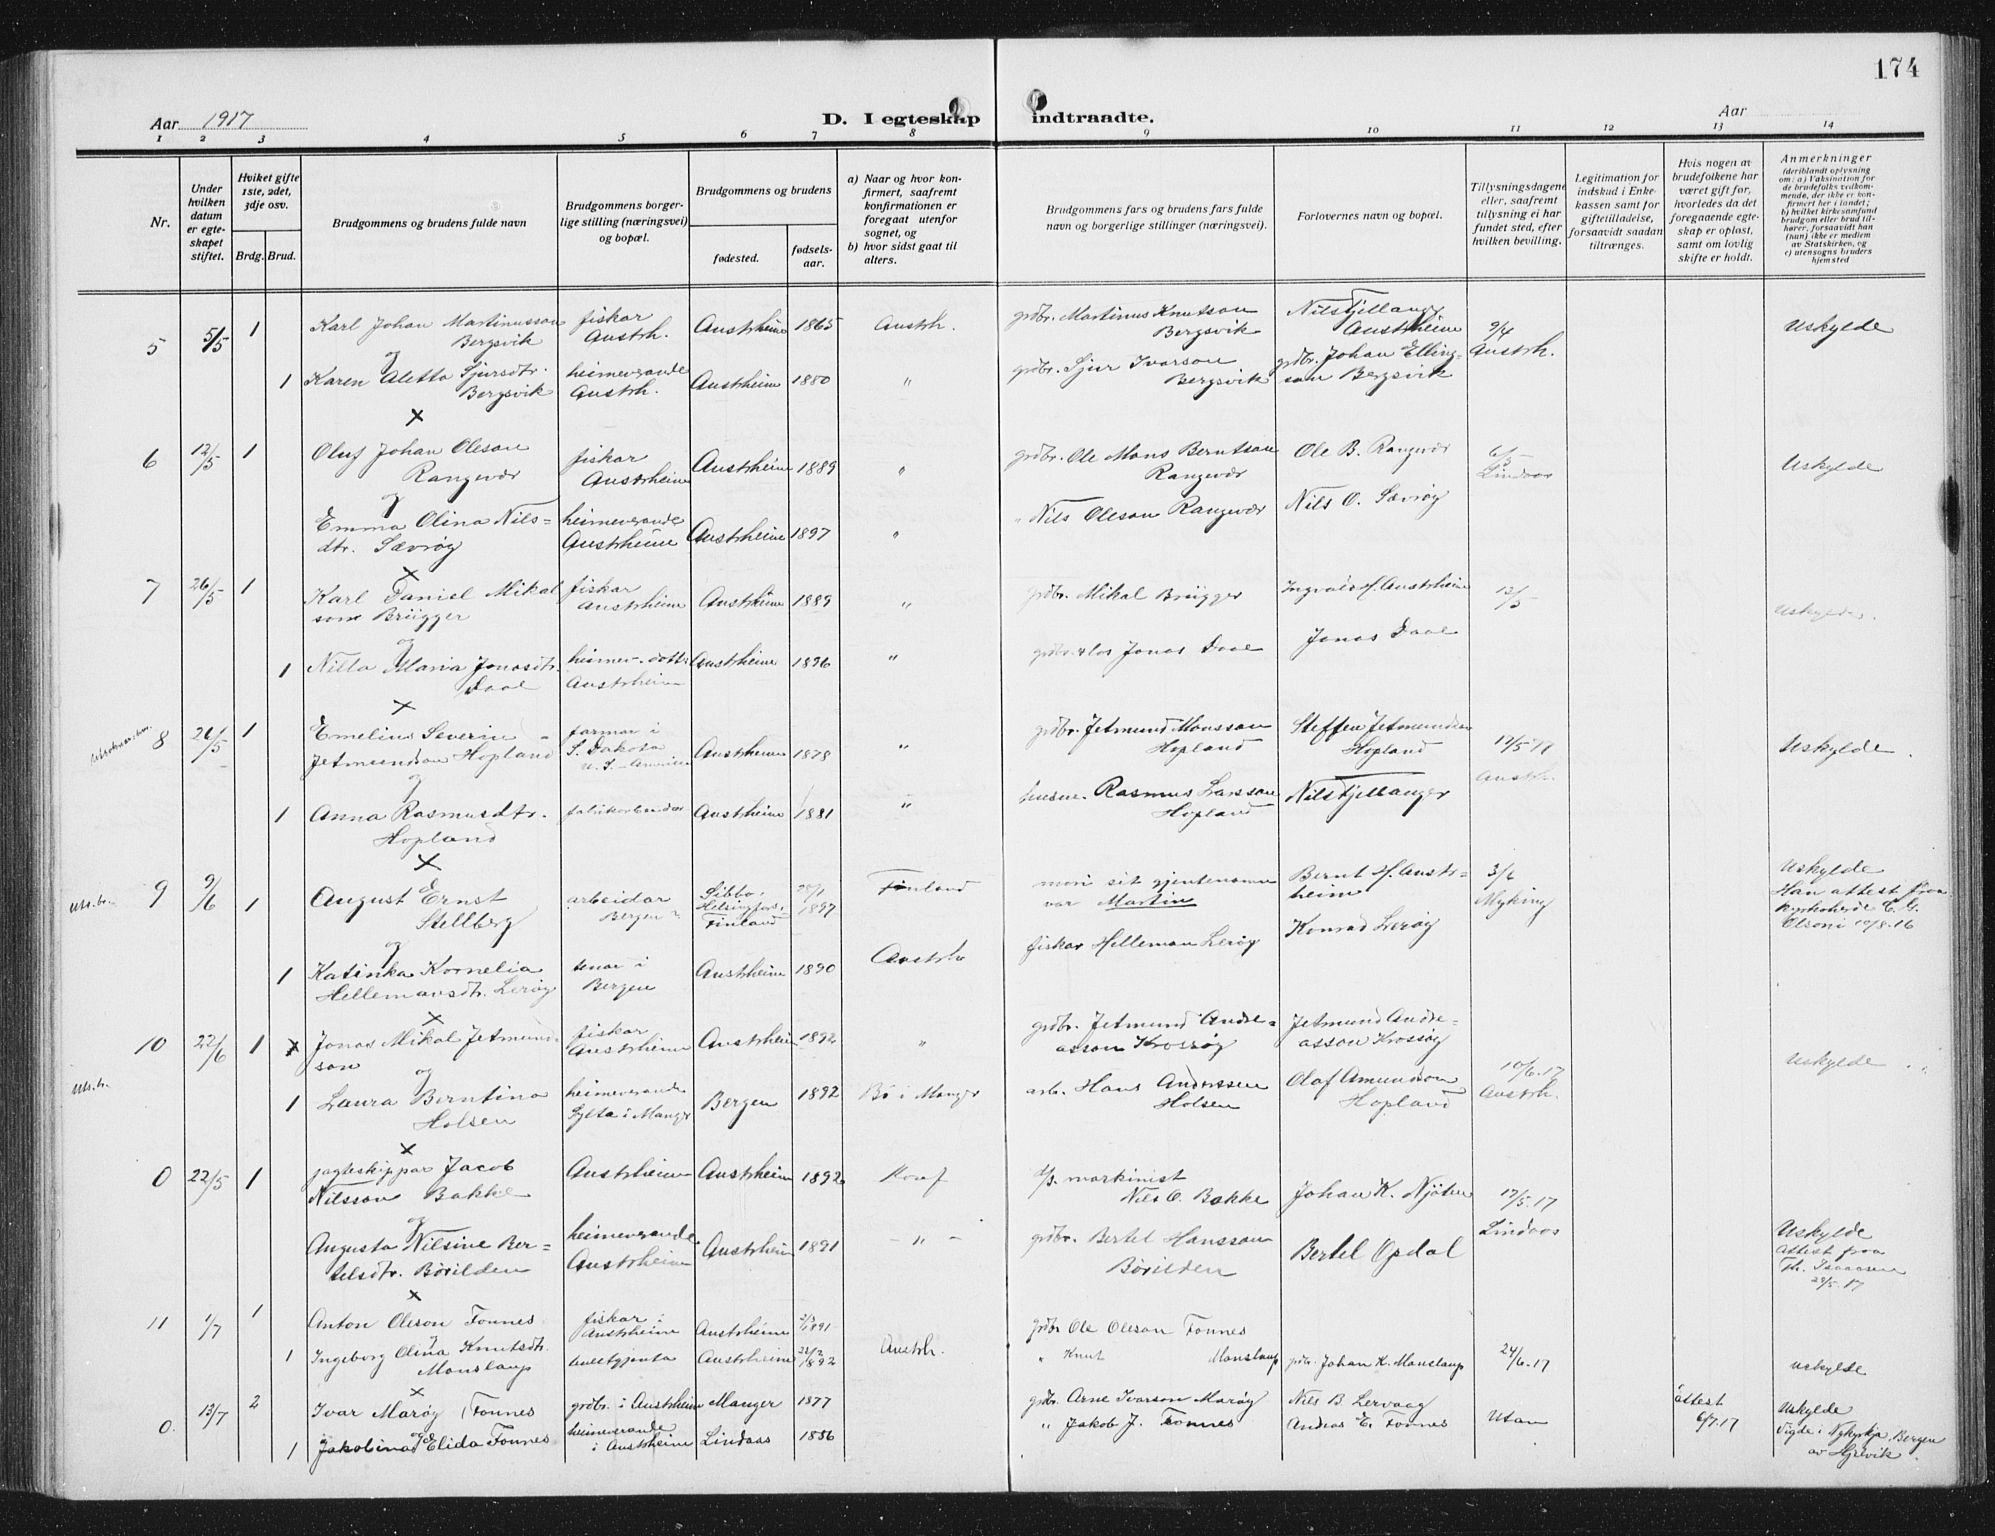 174
Aar 1917
D. I egteskap indtraadte.
Aar
1 2 3 4 5 6 7 8 9 10 11 12 13 14
Nr.
Under hvilken datum er egteskapet stiftet.
Hviket gifte 1ste, 2det, 3dje osv.
Brdg. Brud.
Brudgommens og brudens fulde navn
Brudgommens borgerlige stilling (næringsvei) og bopæl.
Brudgommens og brudens
fødested.
fødselsaar.
a) Naar og hvor konfirmert, saafremt konfirmationen er foregaat utenfor sognet, og
b) hvor sidst gaat til alters.
Brudgommens fars og brudens fars fulde navn og borgerlige stillinger (næringsvei).
Forlovernes navn og bopæl.
Tillysningsdagene eller, saafremt tillysning ei har fundet sted, efter hvilken bevilling.
Legitimation for indskud i Enkekassen samt for giftetilladelse, forsaavidt saadan tiltrænges.
Hvis nogen av brudefolkene har været gift før, hvorledes da det foregaaende egteskap er opløst, samt om lovlig skifte er holdt.
Anmerkninger (deriblandt oplysning om: a) Vaksination for de brudefolks vedkommende, der ikke er konfirmert her i landet; b) hvilket kirkesamfund brudgom eller brud tilhører, forsaavidt han (hun) ikke er medlem av Statskirken, og c) utensogns bruders hjemsted
5 5/5 1 Karl Johan Martinusson Bergsvik fiskar Austrh. Austrheim 1865 Austrh. grdbr. Martinus Knutson Bergsvik Nils Fjellanger Austrheim 9/4 Austrh. Uskylde
og
1 Karen Aletta Sjursdtr. Bergsvik heimeverande Austrh. Austrheim 1880 " grdbr. Sjur Ivarson Bergsvik grdbr. Johan Ellingson Bergsvik
x
6 12/5 1 Oluf Johan Oleson Rangevær fiskar Austrheim Austrheim 1889 " grdbr. Ole Mons Berntson Rangevær Ole B. Rangevær 6/5 Lindaas Uskylde
og
Emma Olina Nilsdtr. Sævrøy heimeverande Austrheim Austrheim 1897 " " Nils Oleson Rangevær Nils O. Sævrøy
x
7 26/5 1 Karl Daniel Mikalsom Brügger fiskar Austrheim Austrheim 1889 " grdbr. Mikal Brügger Ingvald H. Austrheim 12/5 Uskylde.
og
1 Nilla Maria Jonasdtr. Daae heimev. dott. Austrheim Austrheim 1896 " Jonas Daae Jonas Daae
x
8 26/5 1 Emelius Severin Jetmundson Hopland farmar i S. Dakota U. S. Amerika Austrheim 1878 " grdbr. Jetmund Monsson Hopland Steffen Jetmundson Hopland 17/5 17 Austrh. Uskylde.
og
1 Anna Rasmusdtr. Hopland fabrikarbeidar Austrheim 1881 " husm. Rasmus Larsson Hopland Nils Fjellanger
x
Uts.b. 9 9/6 1 August Ernst Stellberg arbeidar Bergen Sibbo, Helsingfors, Finland 1897 Finland mori sit gjentenamn var Martin Bernt H. Austrheim 3/6 Myking Uskylde Han attest fraa kyrkoherde E. G. Olsoni 10/8 16
og
1 Katinka Kornelia Hellemansdtr. Lerøy tenar i Bergen Austrheim 1890 Austrh. fiskar Helleman Lerøy Konrad Lerøy
x
10 22/6 1 Jonas Mikal Jetmundson fiskar Austrheim Austrheim 1892 " grdbr. Jetmund Andreasson Krossøy Jetmund Andreasson Krossøy 10/6.17 Austrh. Uskylde
og
Uts.b. 1 Laura Berntina Holsen heimeverande Sylta i Manger Bergen 1892 Bø i Manger arb. Hans Anderssen Holsen Olaf Amundson Hopland
x
0 22/5 1 jagteskippar Jacob Nilsson Bakke Austrheim Austrheim 1892 Konf. maskinist Nils O. Bakke Johan K. Njøten 17/5.17 Lindaas
og
Augusta Nilsine Bertelsdtr. Børilden heimeverande Austrheim Austrheim 1891 - " - grdbr. Bertel Hansson Børilden Bertel Opdal Uskylde attest fraa Th. Isaaksen 28/5.17
x
11 1/7 1 Anton Oleson Fonnes fiskar i Austrheim Austrheim 1891 grdbr Ole Oleson Fonnes
og
1 Ingeborg Olina Knutsdtr. Monslaup Austrheim 22/2 1892 Austrh. " Knut Monslaup grdbr. Johan K. Monslaup 24/6.17 Uskylde
x
0. 13/7 2 Ivar Marøy (Fonnes grdbr. i Austrheim Manger 1877 grdbr. Arne Ivarson Marøy Nils B. Lervaag Utan Attest 6/7.17 Uskylde
og
1 Jakobina Elida Fonnes heimeverande i Austrheim Lindaas 1886 " Jakob J. Fonnes Andras E. Fonnes Vigde i Nykyrkja, Bergen av Hjelvik.